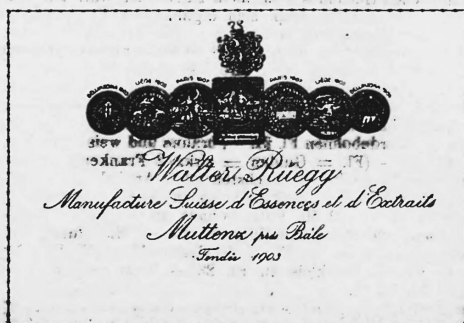 PARIS 1907 PARIS 1907
Walter Ruegg
Manufacture Suisse d'Essences et d'Extraits
Muttenz près Bâle
Fondée 1903